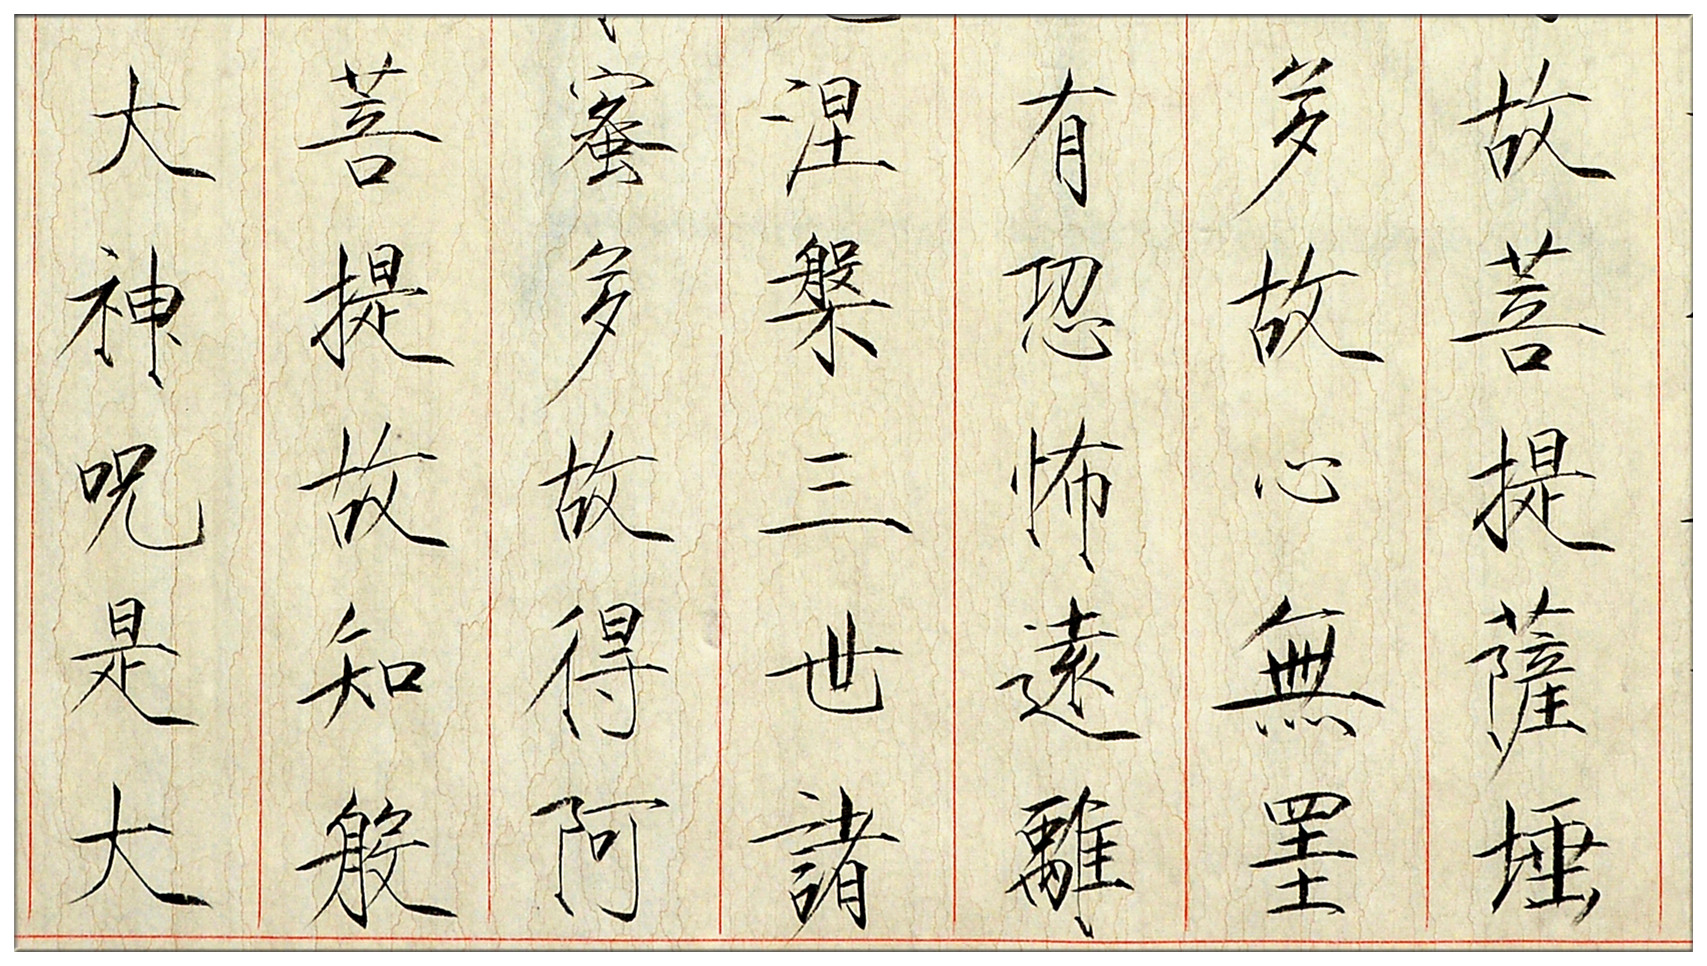 故菩提薩埵
多故心無罣
有恐怖遠離
涅槃三世諸
蜜多故得阿
菩提故知般
大神呪是大